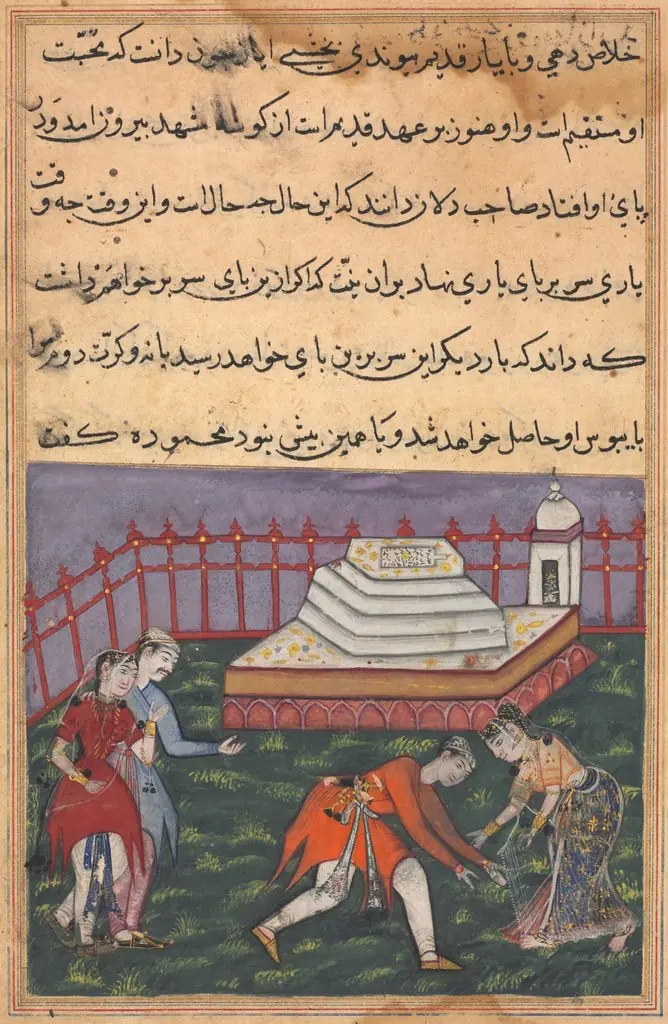 خلاص دهي و بايار قديم پيوندي بخشي چون دانت که محبّت
او مستقيم است و او هنوز بر عهد قديم است از کوشه مشهد بيرون امد و در
پاي او افتاد صاحب دلان دانند که اين حال چه حال است و اين وقت چه وقت
ياري سر بر پاي ياري نهاد بران نيّت که اکر ازين پاي سر بر خواهم داشت
که داند که بار ديکر اين سر برين پاي خواهد رسيد يا نه و کرّت دوم مرا
پايبوس او حاصل خواهد شد و يا همين بيش نبود محموده کفت